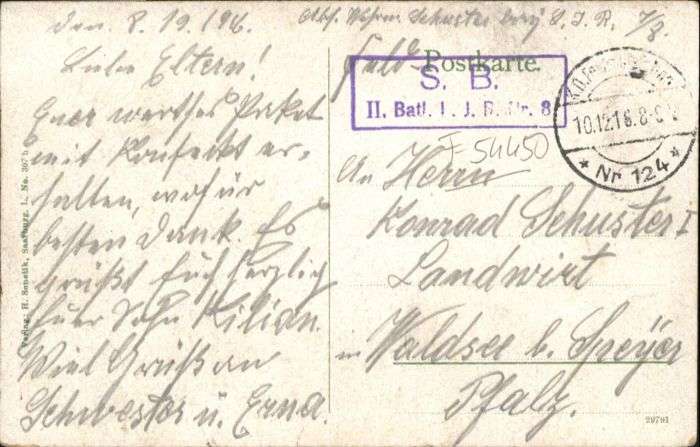 den 8. 19./16.
Liebe Eltern!
Euer wertes Paket
mit Konfeckt er-
halten, wofür
besten Dank. Es
grüßt Euch herzlich
Euer Sohn Kilian.
Viel Grüß an
Schwester u. Erna.
Verlag: H. Sonetik, Saarburg i. L. No. 367
Abs. Wehrm. Schuster bay. 8. I. R. 7/8.
Feld- Postkarte.
S. B.
II. Batl. 1. J. R. Nr. 8
10.12.16.8-9
* Nr. 124 *
F 54450
An Herrn
Konrad Schuster I
Landwirt
in Waldsee b. Speyer
Pfalz.
29791